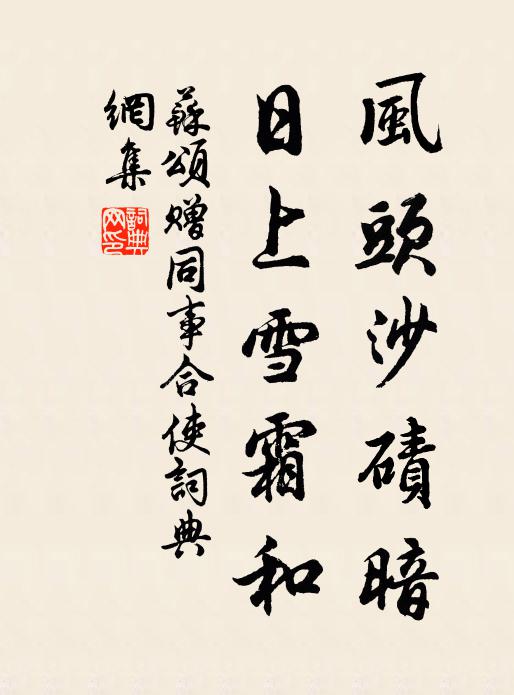 風頭沙磧暗
日上雪霜和
蘇頌贈同事合使詞典
網集
詞典网印